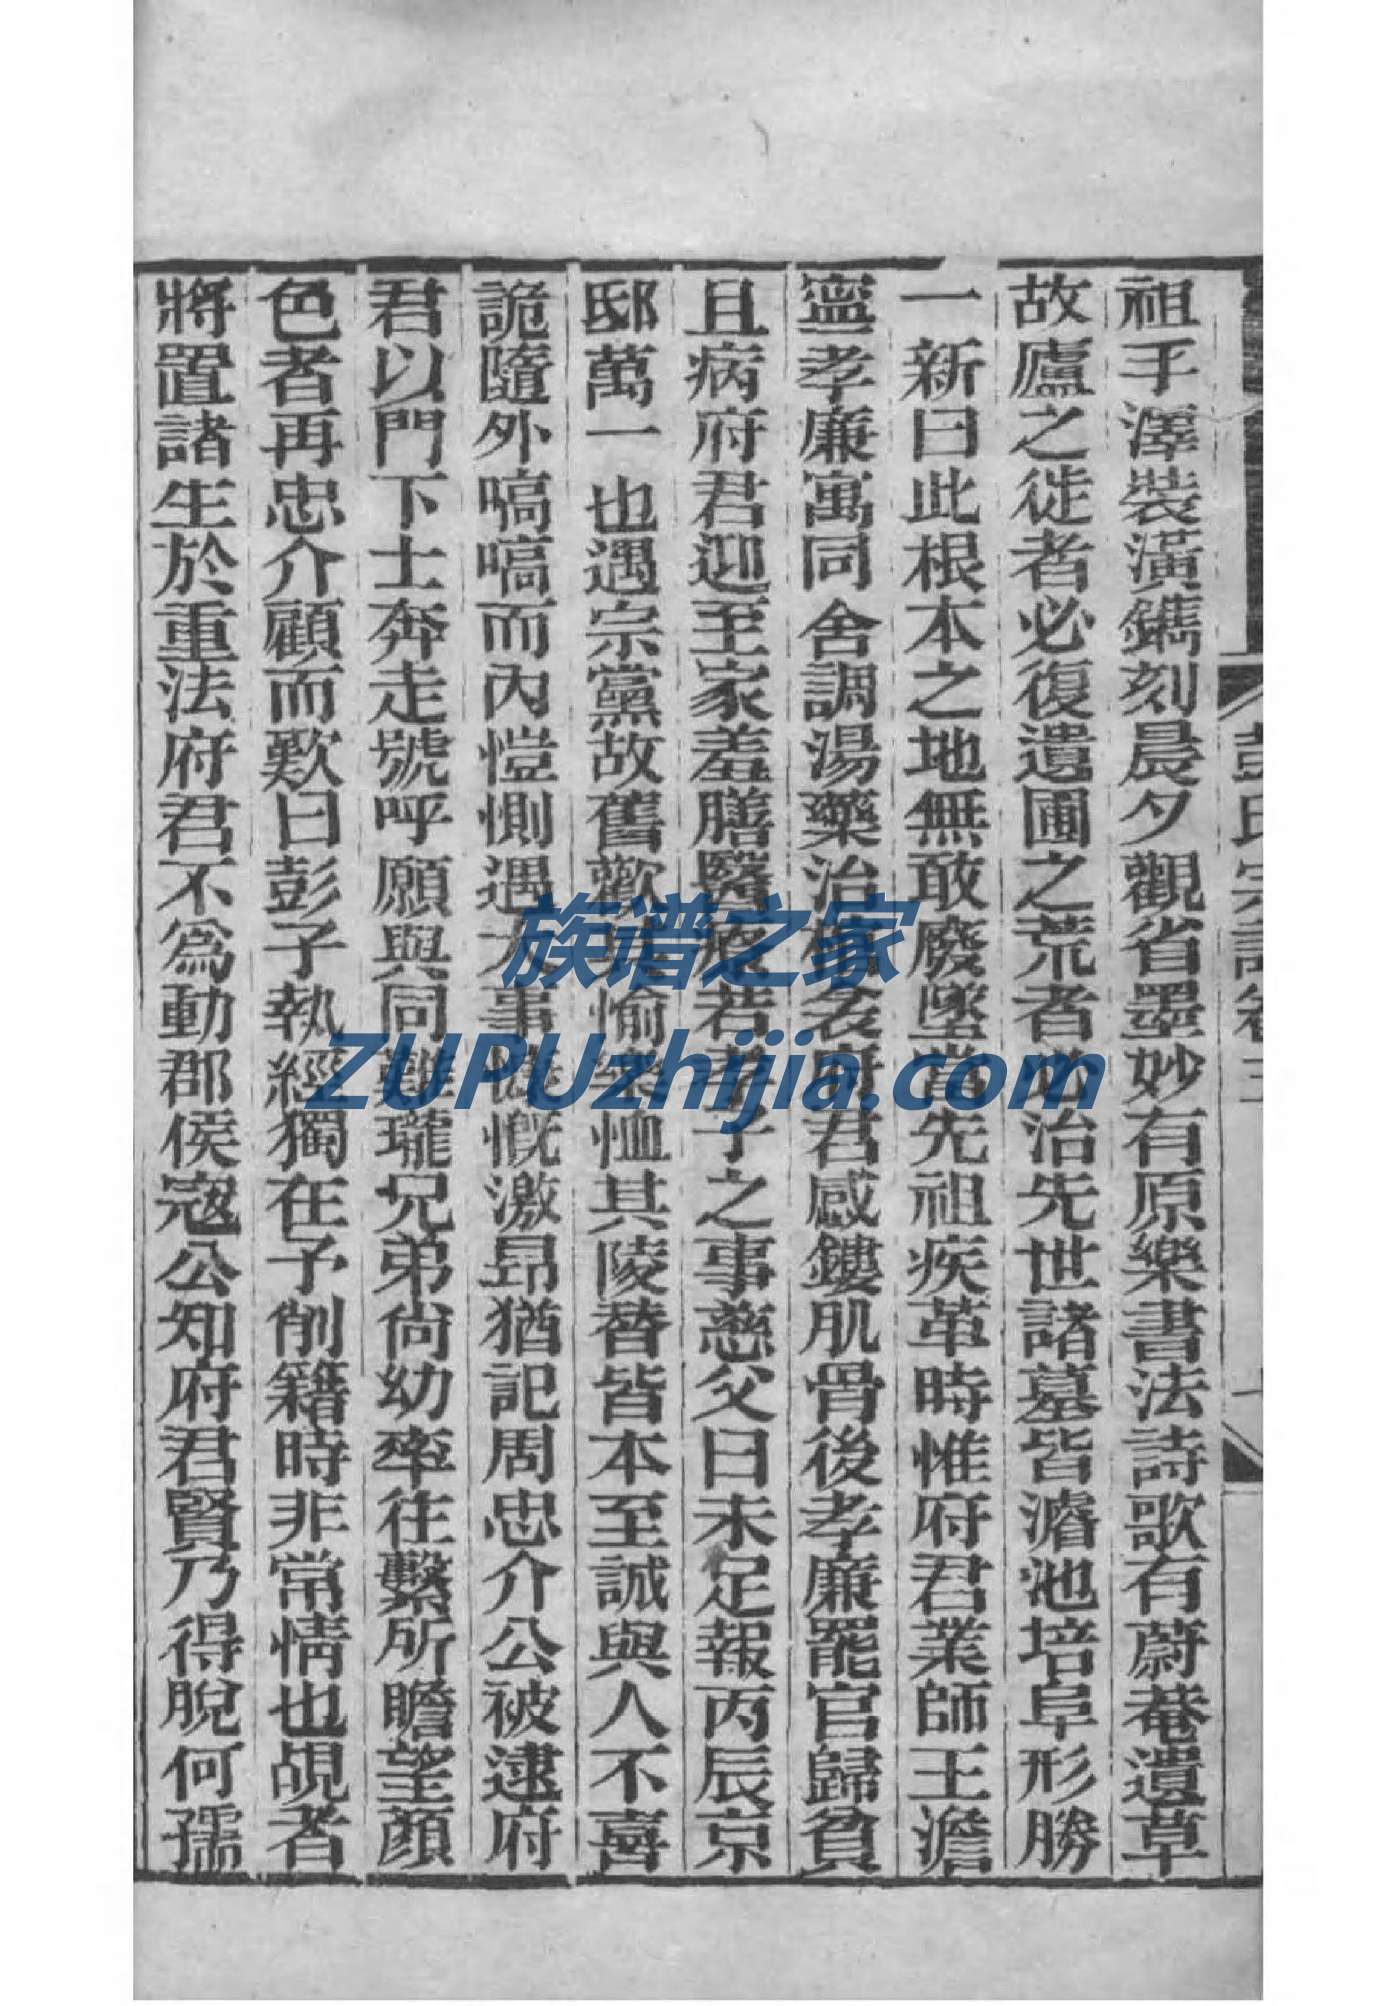 祖手澤裝潢鐫刻晨夕觀省墨妙有原樂書法詩歌有蔚菴遺草
故廬之徙者必復遺圃之荒者必治先世諸墓皆濬池培阜形勝
一新曰此根本之地無敢廢墜當先祖疾革時惟府君業師王澹
寧孝廉寓同舍調湯藥治棺衾府君感鏤肌骨後孝廉罷官歸貧
且病府君迎至家羞膳醫療若孝子之事慈父曰未足報丙辰京
邸萬一也遇宗黨故舊歡愉樂恤其陵替皆本至誠與人不喜
詭隨外嗃嗃而內愷惻遇大事慷慨激昂猶記周忠介公被逮府
君以門下士奔走號呼願與同難瓏兄弟尙幼率往繫所瞻望顏
色者再忠介顧而歎曰彭子執經獨在予削籍時非常情也覘者
將置諸生於重法府君不爲動郡侯寇公知府君賢乃得脫何孺
彭氏宗譜卷三
族谱之家
ZUPUzhijia.com